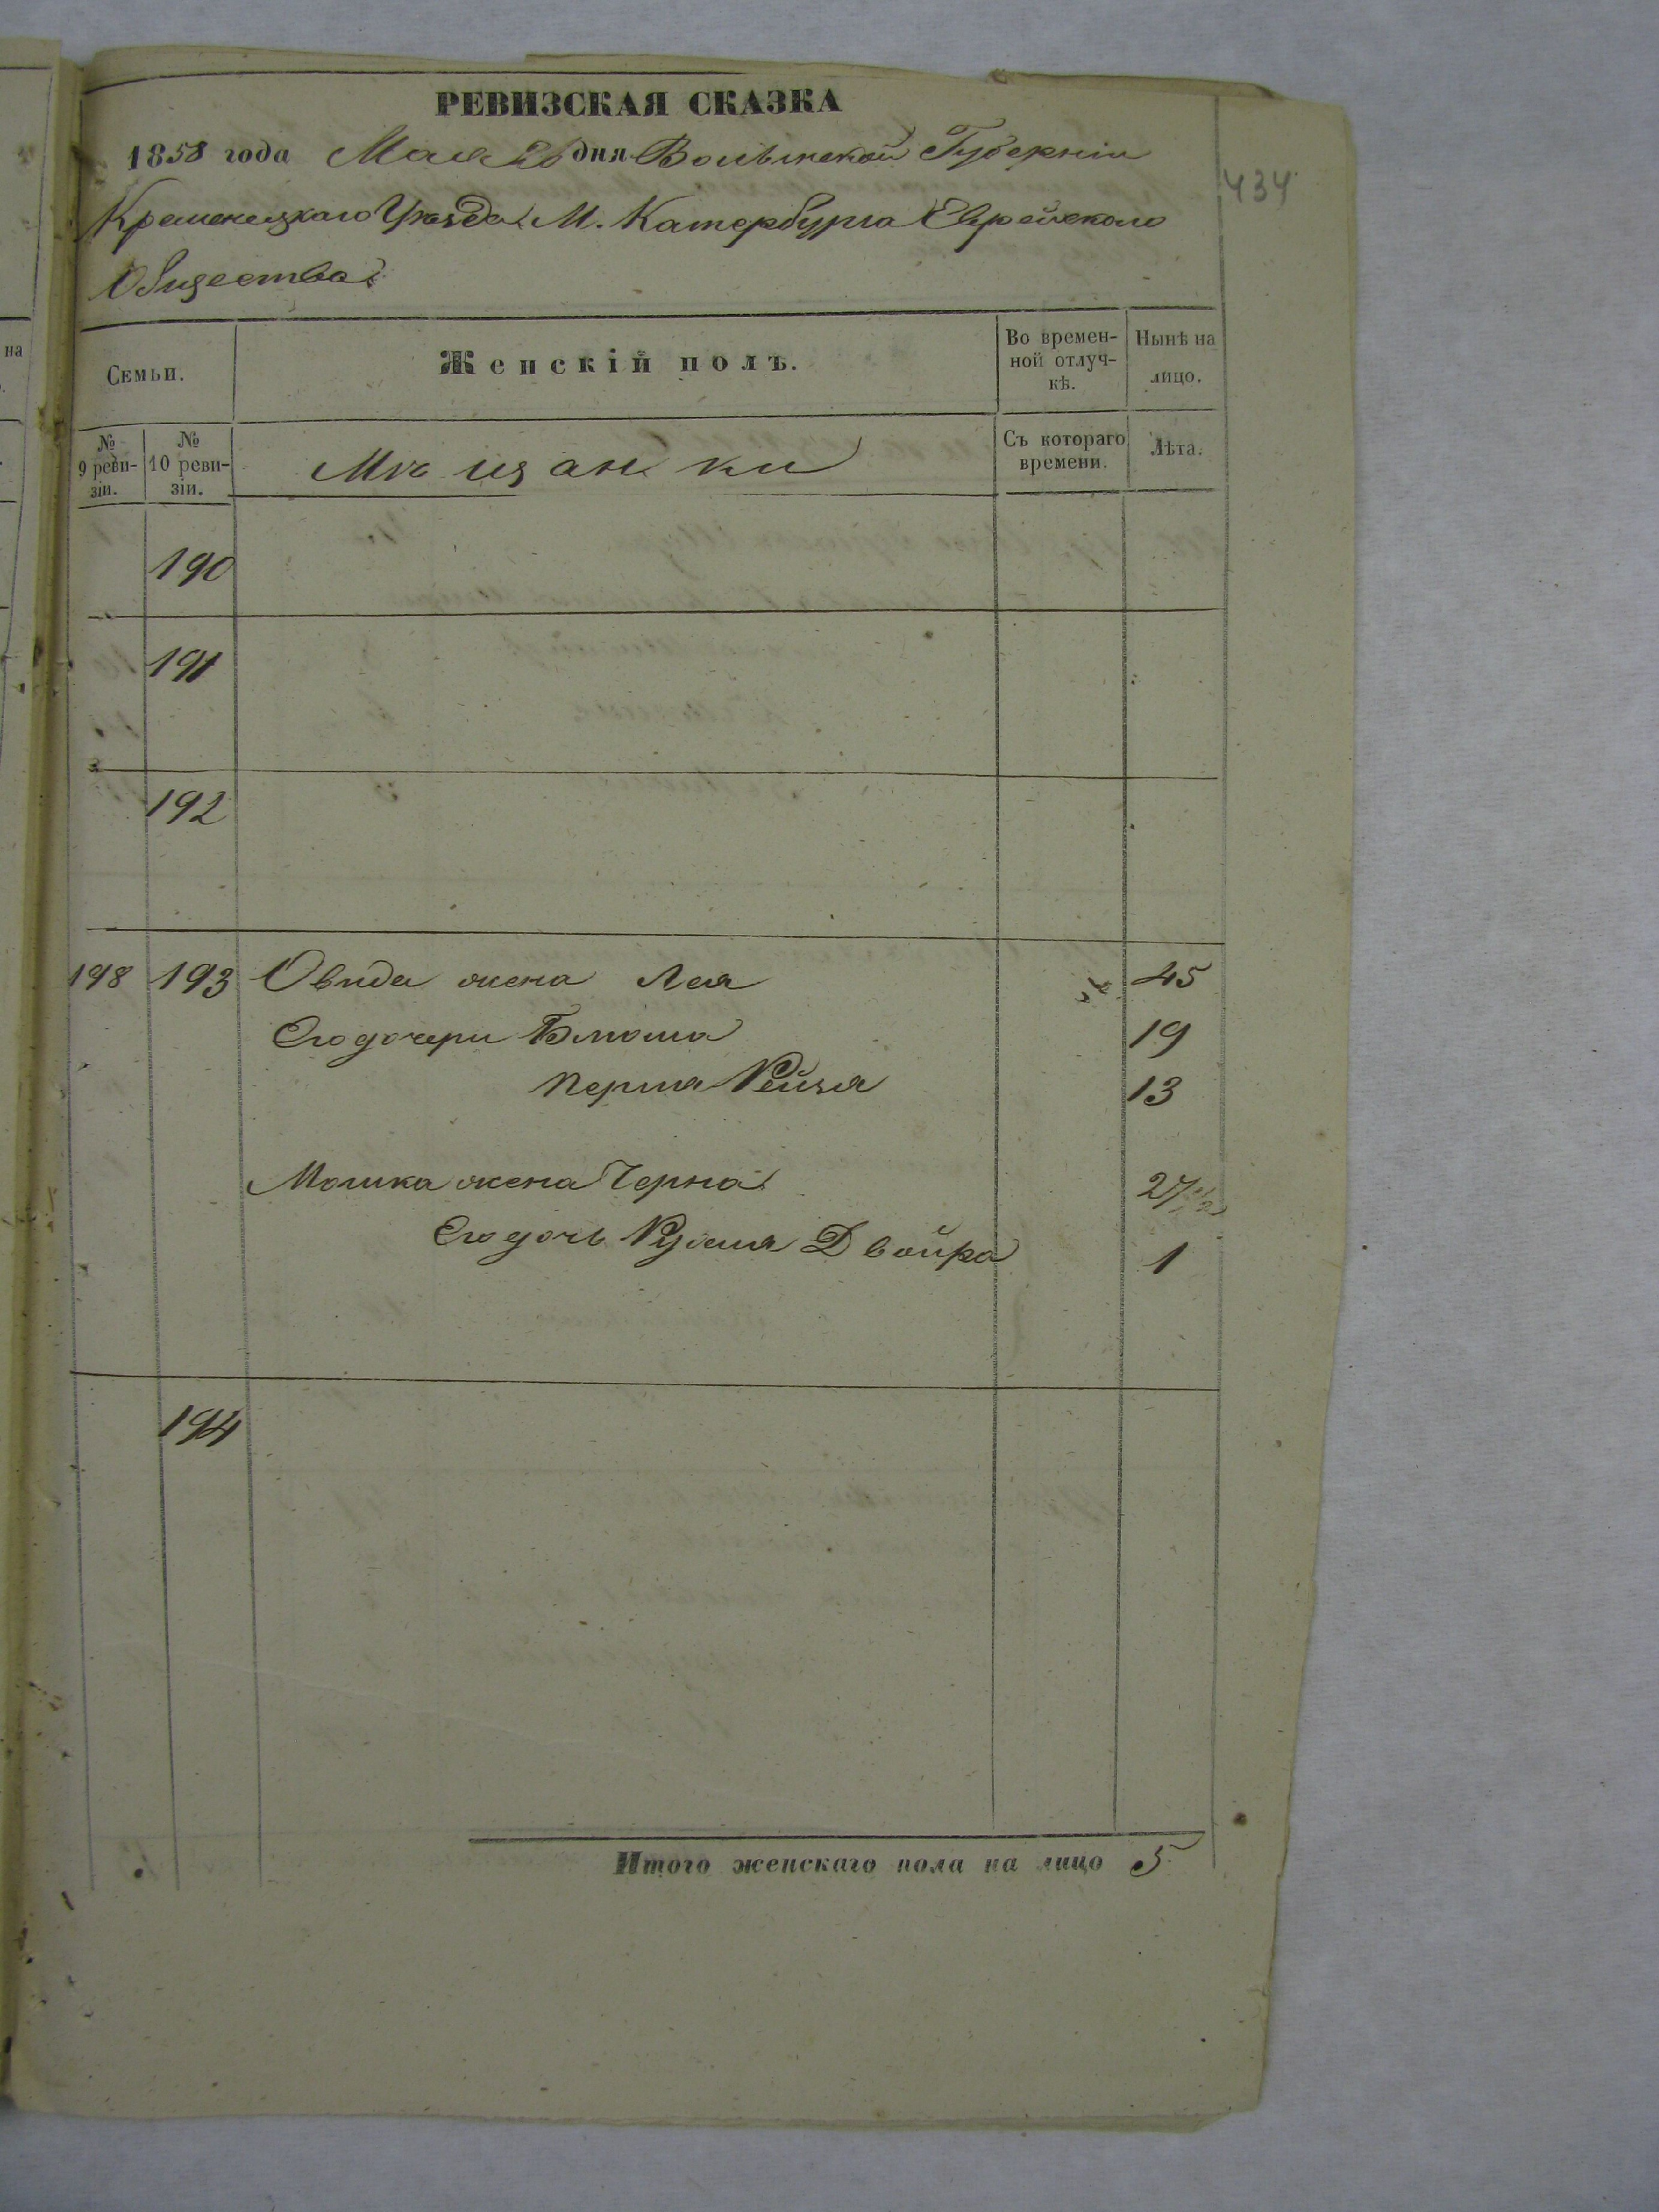 РЕВИЗСКАЯ СКАЗКА
1858 года Мая 26 дня Волынской Губерніи
434
Кременецкаго Уѣзда М. Катербурга Еврейскаго
Общества
на
Семьи.
Женскій полъ.
Во времен-
ной отлуч-
кѣ.
Нынѣ на
лицо.
№
9 реви-
зіи.
№
10 реви-
зіи.
Мѣщанки
Съ котораго
времени.
Лѣта.
190
191
192
198 193 Овида жена Лея 45
Его дочери Блюма 19
Перля Рейзя 13
Мошка жена Черна 27
Его дочь Двойра 1
194
Итого женскаго пола на лицо 5